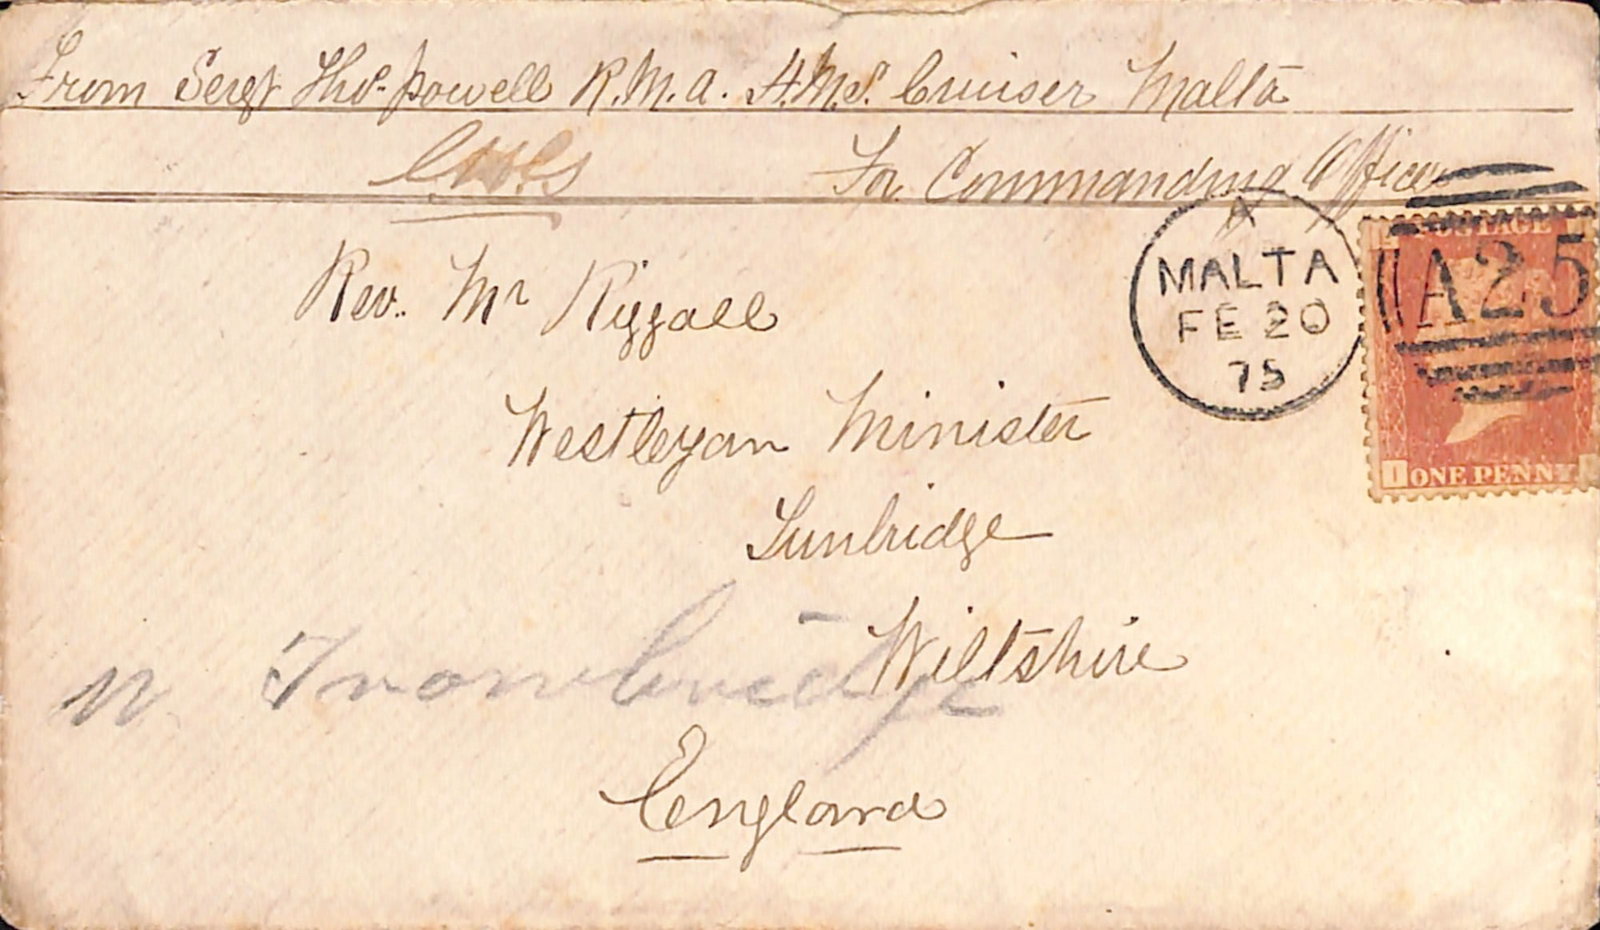 From Sergt Thos Powell R.M.A. H.M.S. Cruiser Malta
For Commanding Officer
A
MALTA
FE 20
75
POSTAGE
A25
ONE PENNY
I
Rev. Mr Riggall
Westleyan Minister
Tunbridge
Wiltshire
n. Trowbridge
England